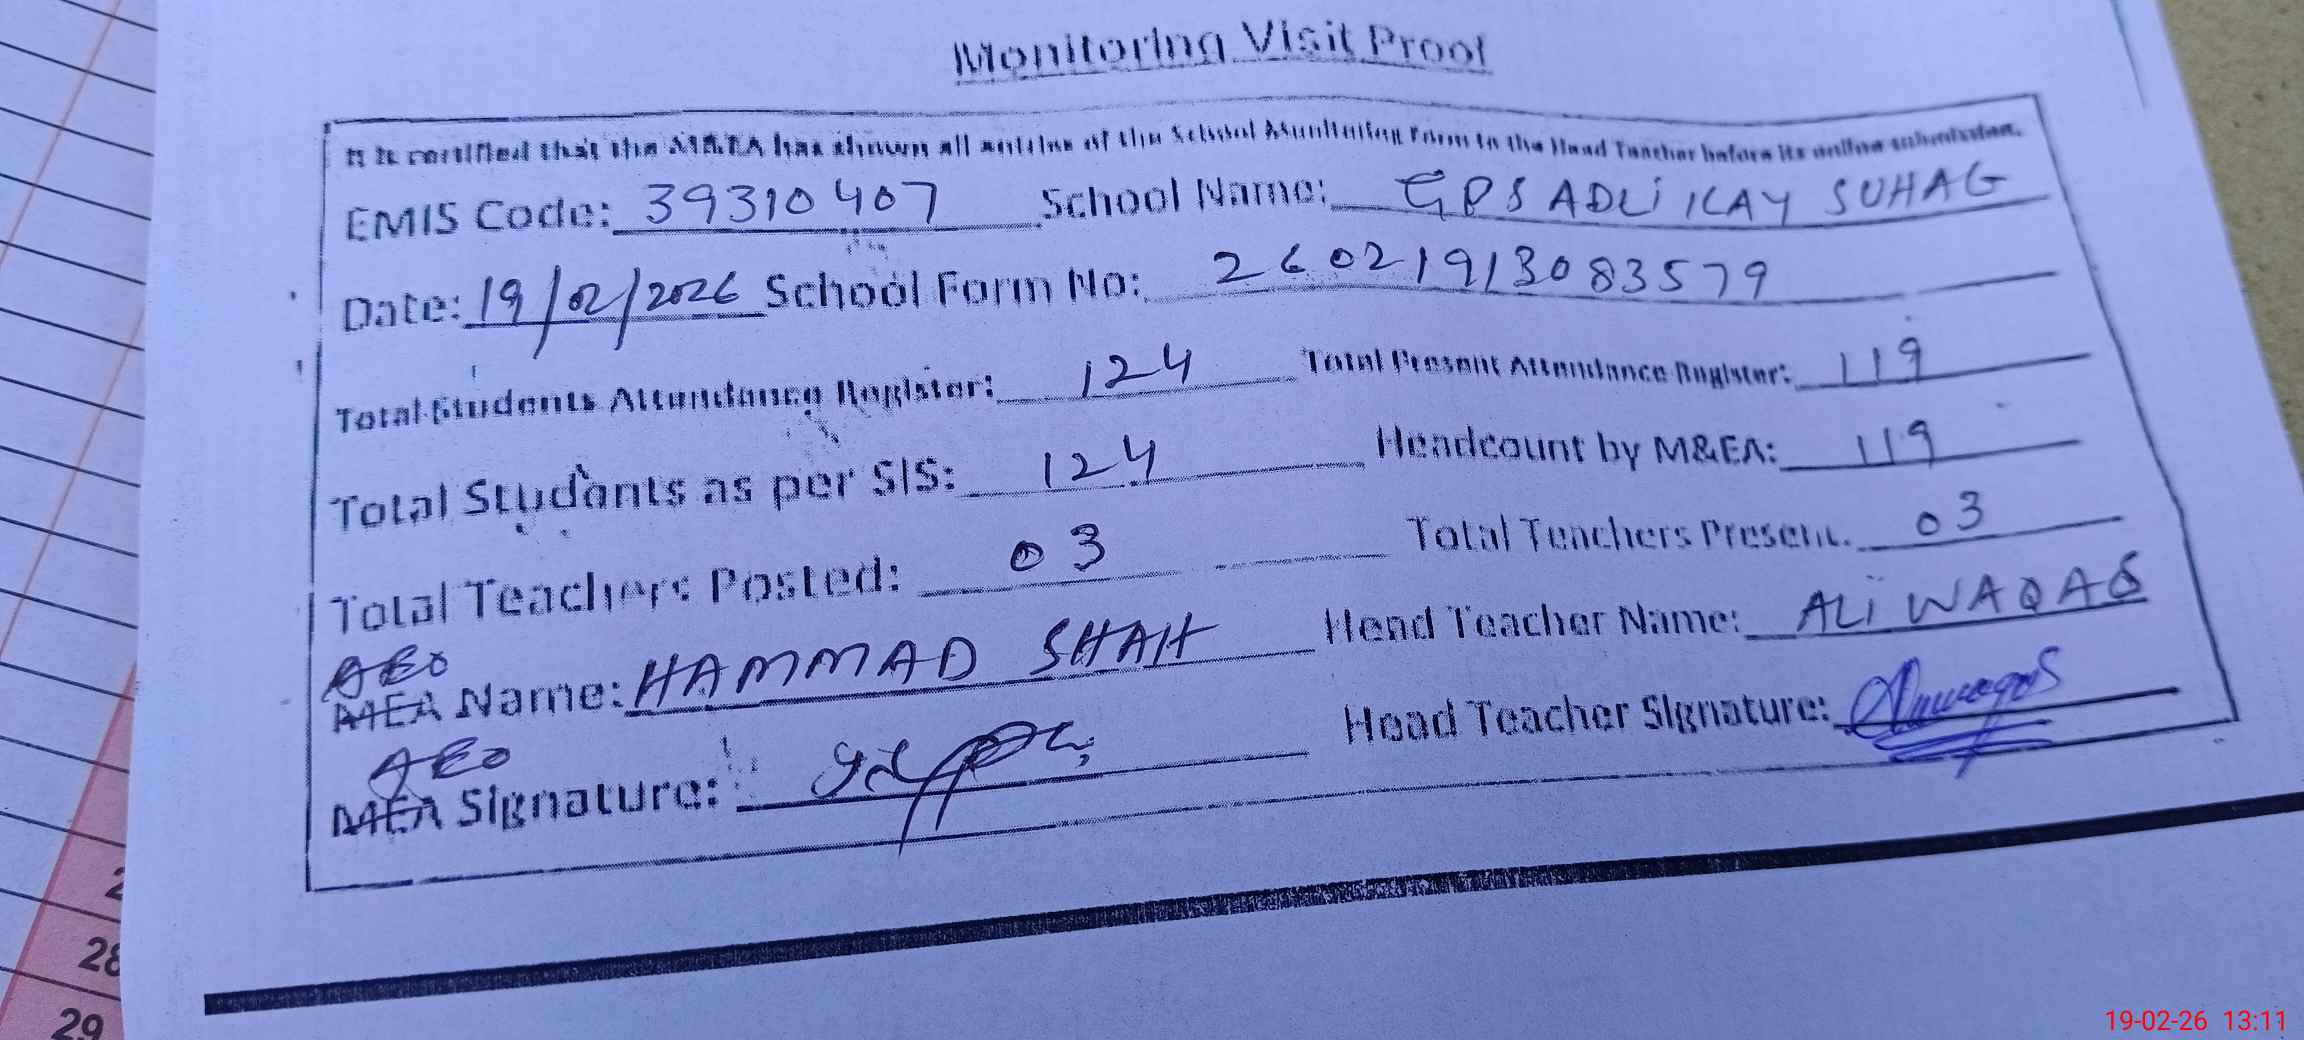 Monitoring Visit Proof
It is certified that the M&EA has shown all entries of the School Monitoring Form to the Head Teacher before its online submission.
EMIS Code: 39310407 School Name: GPS ADLi KAY SUHAG
Date: 19/02/2026 School Form No: 26021913083579
Total Students Attendance Register: 124 Total Present Attendance Register: 119
Total Students as per SIS: 124 Headcount by M&EA: 119
Total Teachers Posted: 03 Total Teachers Present: 03
AEO
MEA Name: HAMMAD SHAH Head Teacher Name: ALi WAQAS
AEO
MEA Signature: Head Teacher Signature:
28
29
19-02-26 13:11